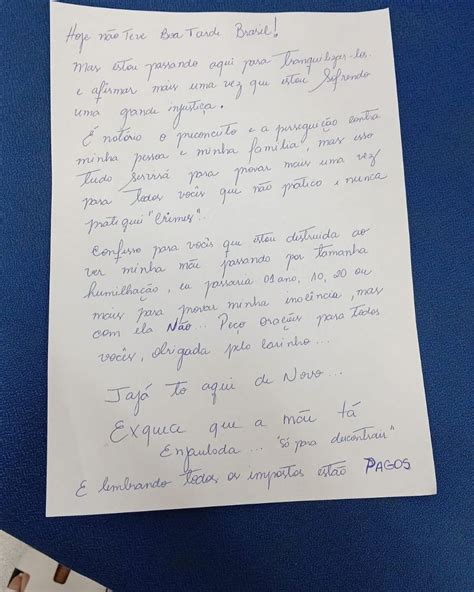 Hoje não Teve Boa Tarde Brasil!
Mas estou passando aqui para Tranquilizar-los
e afirmar mais uma vez que estou Sofrendo
uma grande injustiça.
É notório o preconceito e a perseguição contra
minha pessoa e minha família, mas isso
tudo servirá para provar mais uma vez
para todos vocês que não pratico e nunca
pratiquei "Crimes"..
Confesso para vocês que estou destruida ao
ver minha mãe passando por tamanha
humilhação, eu passaria 01 ano, 10, 20 ou
mais para provar minha inocência, mas
com ela Não... Peço orações para todos
vocês, obrigada pelo carinho...
Jajá to aqui de Novo...
Exquece que a mãe tá
Enjaulada... "só para descontrair"
E lembrando todos os impostos estão PAGOS